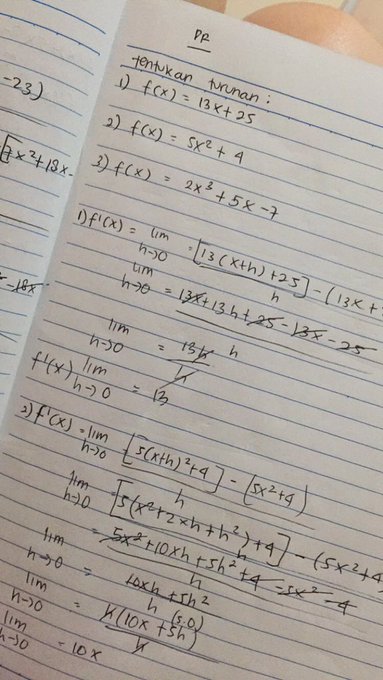 PR
tentukan turunan :
1) f(x) = 13x + 25
2) f(x) = 5x² + 4
3) f(x) = 2x³ + 5x - 7
-23)
7x² + 13x -
- 18x
1) f'(x) = lim h→0 = [13(x+h) + 25] - (13x +
h
lim h→0 = 13x + 13h + 25 - 13x - 25
h
lim h→0 = 13h
h
f'(x) lim h→0 = 13
2) f'(x) = lim h→0 [5(x+h)² + 4] - (5x² + 4)
h
lim h→0 = [5(x² + 2xh + h²) + 4] - (5x² + 4
h
= 5x² + 10xh + 5h² + 4 - 5x² - 4
h
lim h→0 = 10xh + 5h²
h
lim h→0 = h(10x + 5h) (5.0)
h
lim h→0 = 10x